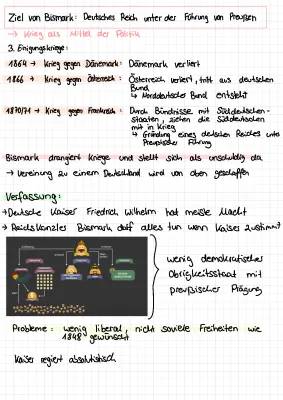 Ziel von Bismark: Deutsches Reich unter der Führung von Preußen
→ Krieg als Mittel der Politik
3. Einigungskriege:
1864 → Krieg gegen Dänemark: Dänemark verliert
1866 → Krieg gegen Österreich: Österreich verliert, tritt aus deutschen
Bund
↳ Norddeutscher Bund entsteht
1870/71 → Krieg gegen Frankreich: Durch Bündnisse mit Süddeutschen-
staaten, ziehen die Süddeutschen
mit in Krieg
↳ Gründung eines deutschen Reiches unter
Preußischer Führung
Bismark drangiert Kriege und stellt sich als unschuldig da
→ Vereinung zu einem Deutschland wird von oben geschaffen
Verfassung:
→ Deutsche Kaiser Friedrich Wilhelm hat meiste Macht
→ Reichskanzler Bismark darf alles tun wenn Kaiser zustimmt
wenig demokratischer
Obrigkeitsstaat mit
preußischer Prägung
Probleme: wenig liberal, nicht soviele Freiheiten wie
1848 gewünscht
Kaiser regiert absolutistisch